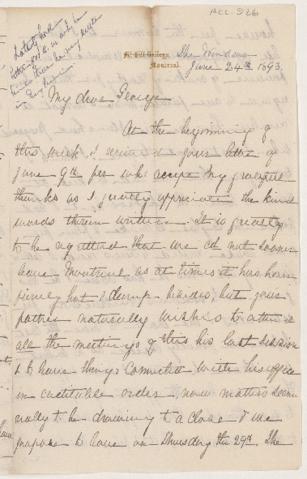 ACC. 926
McGill College,
Montreal.
The Windsor
June 24th 1893
My dear George
At the beginning of
this week I received your letter of
June 9th for wh. accept my grateful
thanks as I greatly appreciate the kind
words therein written. It is greatly
to be regretted that we cd not sooner
leave Montreal as at times it has been
hot & damp besides, but your
father naturally wishes to attend
all the meetings of this his last session
& to have things connected with his office
in order, now matters seem
really to be drawing to a close & we
propose to leave on Thursday the 29th. The